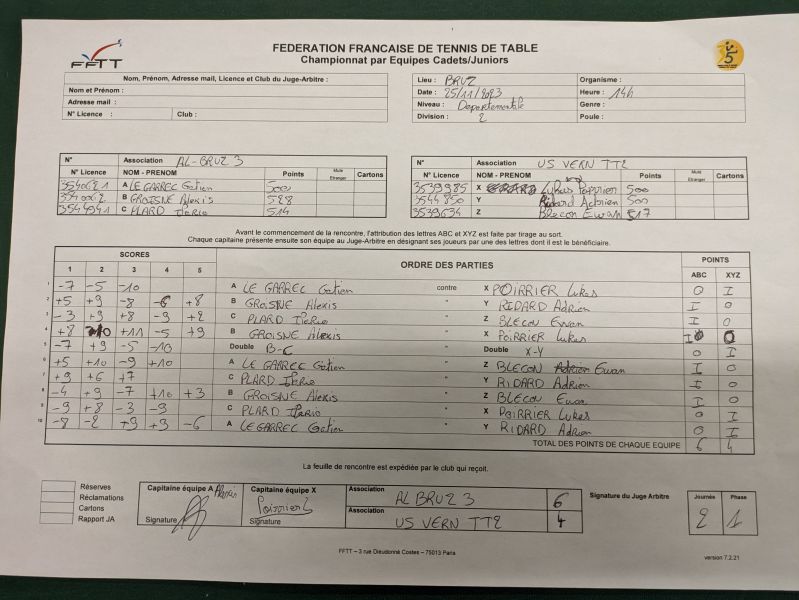 FFTT
FEDERATION FRANCAISE DE TENNIS DE TABLE
Championnat par Equipes Cadets/Juniors
Nom, Prénom, Adresse mail, Licence et Club du Juge-Arbitre :
Nom et Prénom :
Adresse mail :
N° Licence : Club :
Lieu : BRUZ Organisme :
Date : 25/11/2023 Heure : 14h
Niveau : Départementale Genre :
Division : 2 Poule :
N° Association AL-BRUZ 3
N° Licence NOM - PRENOM Points Mute Etranger Cartons
3540621 A LE GARREC Gatien 500
B GROISNE Alexis 528
3544941 C PLARD 514
N° Association US VERN TT2
N° Licence NOM - PRENOM Points Mute Etranger Cartons
3539985 X Lukas Poirrier 500
3544850 Y Ridard Adrien 500
3539634 Z Blecon Ewan 517
Avant le commencement de la rencontre, l'attribution des lettres ABC et XYZ est faite par tirage au sort.
Chaque capitaine présente ensuite son équipe au Juge-Arbitre en désignant ses joueurs par une des lettres dont il est le bénéficiaire.
SCORES ORDRE DES PARTIES POINTS
1 2 3 4 5 ABC XYZ
1 -7 -5 -10 A LE GARREC Gatien contre X POIRRIER Lukas 0 I
2 +5 +9 -8 -6 +8 B GROISNE Alexis " Y RIDARD Adrien I 0
3 -3 +9 +8 -9 +2 C PLARD " Z BLECON Ewan I 0
4 +8 +11 -5 +9 B GROISNE Alexis " X POIRRIER Lukas I 0
5 -7 +9 -5 -10 Double B-C Double X-Y 0 I
6 +5 +10 -9 +10 A LE GARREC Gatien " Z BLECON Ewan I 0
7 +9 +6 +7 C PLARD " Y RIDARD Adrien I 0
8 -4 +9 -7 +10 +3 B GROISNE Alexis " Z BLECON Ewan I 0
9 -9 +8 -3 -9 C PLARD " X POIRRIER Lukas 0 I
10 -8 -2 +9 +3 -6 A LE GARREC Gatien " Y RIDARD Adrien 0 I
TOTAL DES POINTS DE CHAQUE EQUIPE 6 4
La feuille de rencontre est expédiée par le club qui reçoit.
Réserves
Réclamations
Cartons
Rapport JA
Capitaine équipe A Alexis
Signature
Capitaine équipe X
Signature
Association AL BRUZ 3 6
Association US VERN TT2 4
Signature du Juge Arbitre
Journée Phase
2 1
FFTT – 3 rue Dieudonné Costes – 75013 Paris
version 7.2.21